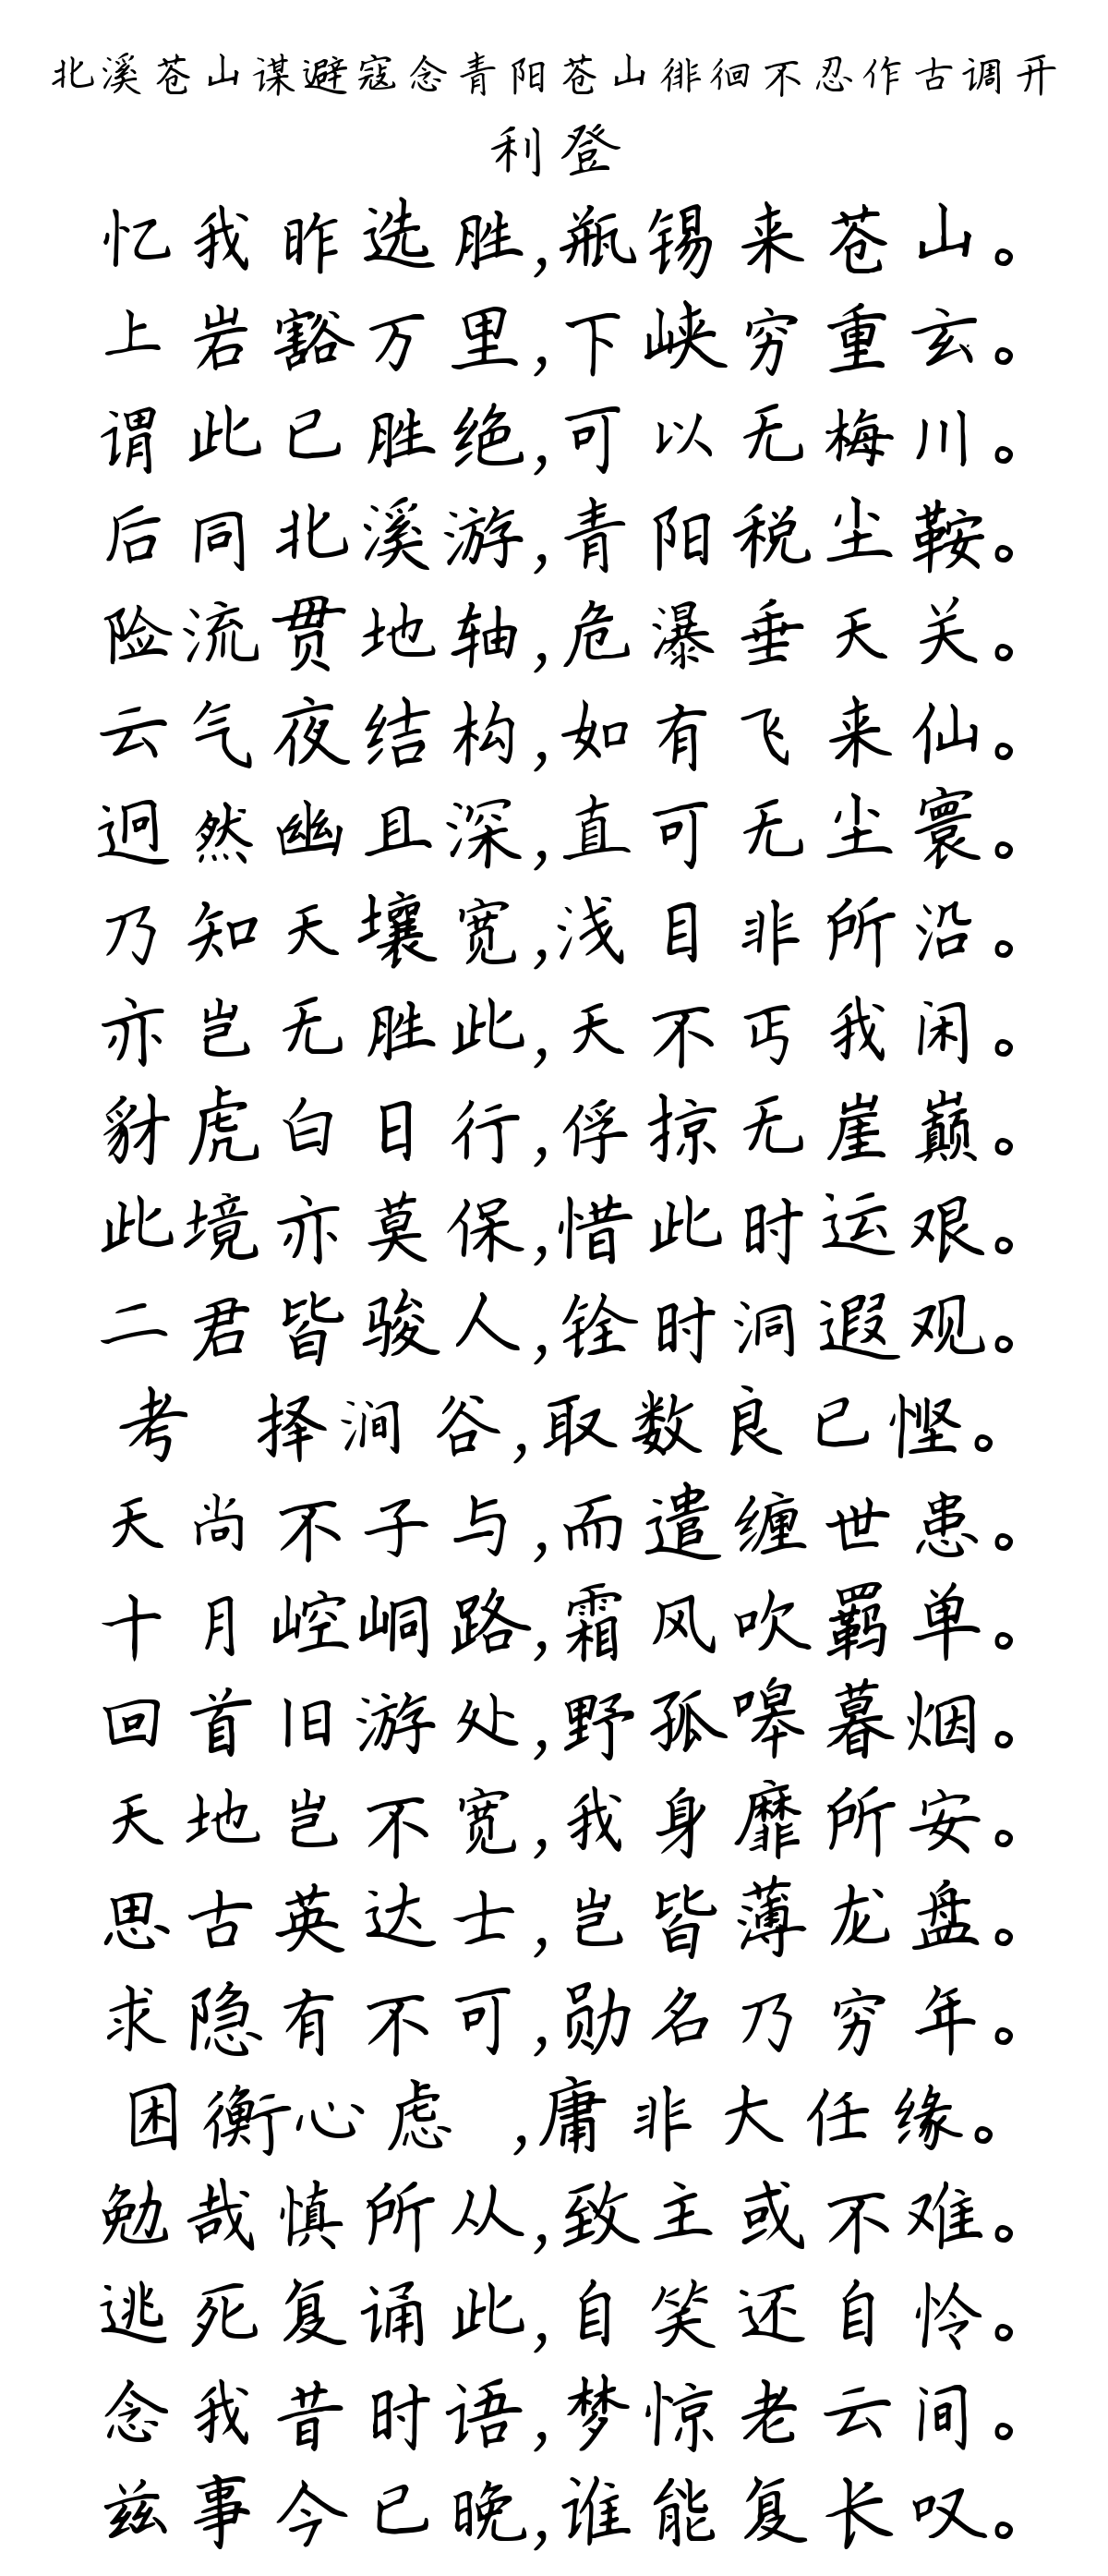 北溪苍山谋避寇念青阳苍山徘徊不忍作古调开
利登
忆我昨选胜,瓶锡来苍山。
上岩豁万里,下峡穷重玄。
谓此已胜绝,可以无梅川。
后同北溪游,青阳税尘鞍。
险流贯地轴,危瀑垂天关。
云气夜结构,如有飞来仙。
迥然幽且深,直可无尘寰。
乃知天壤宽,浅目非所沿。
亦岂无胜此,天不丐我闲。
豺虎白日行,俘掠无崖巅。
此境亦莫保,惜此时运艰。
二君皆骏人,铨时洞遐观。
考 择涧谷,取数良已悭。
天尚不子与,而遣缠世患。
十月崆峒路,霜风吹羁单。
回首旧游处,野孤嗥暮烟。
天地岂不宽,我身靡所安。
思古英达士,岂皆薄龙盘。
求隐有不可,勋名乃穷年。
困衡心虑 ,庸非大任缘。
勉哉慎所从,致主或不难。
逃死复诵此,自笑还自怜。
念我昔时语,梦惊老云间。
兹事今已晚,谁能复长叹。